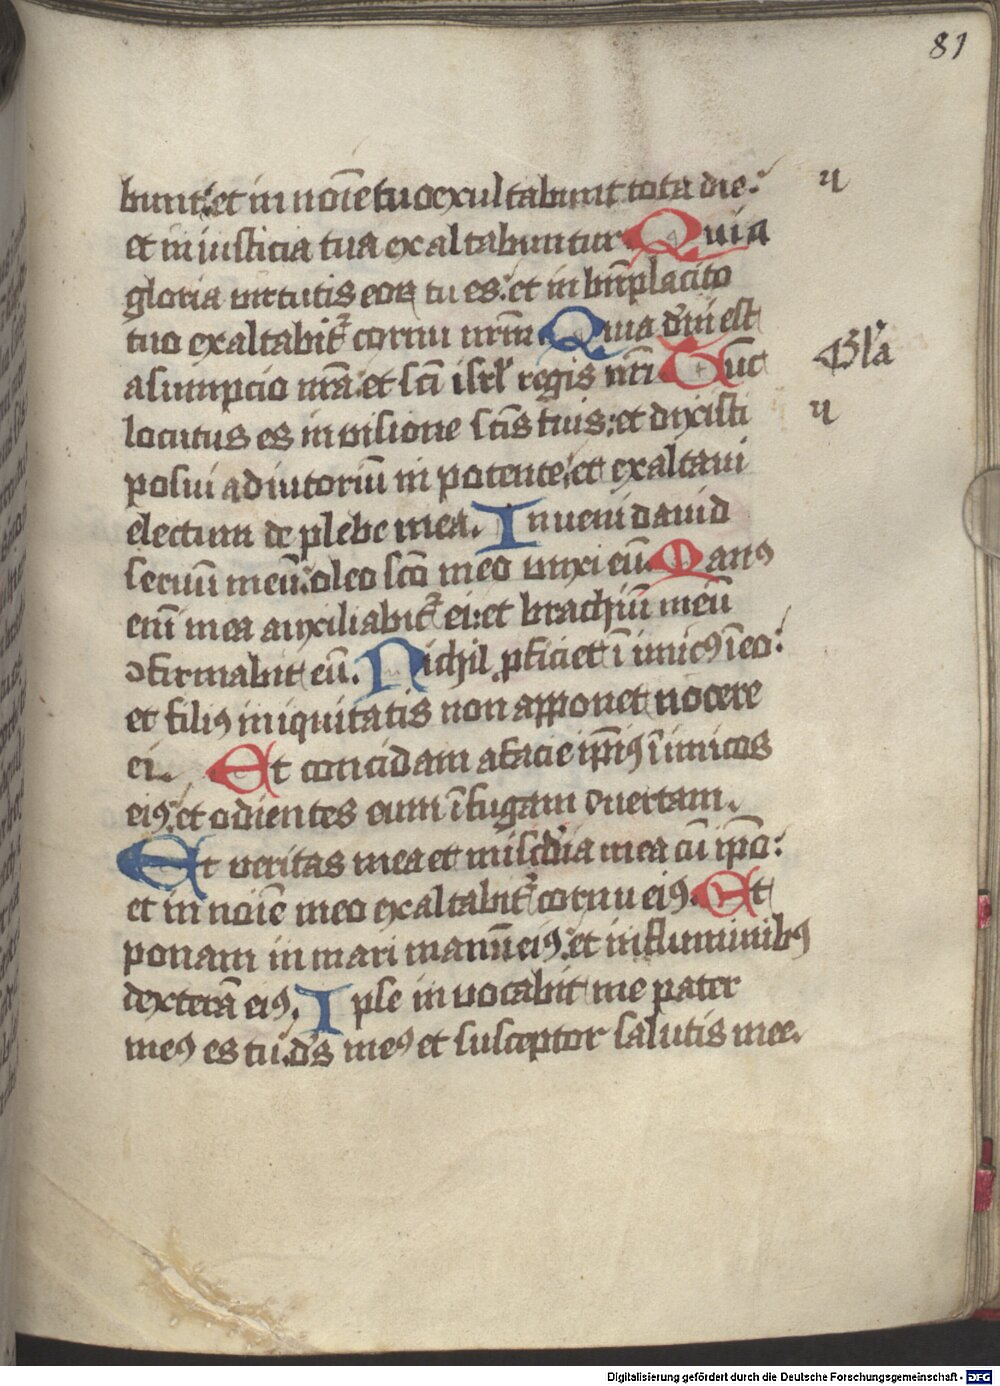 81
bunt: et in noīe tuo exultabunt tota die:
et in iusticia tua exaltabuntur Quia
gloria virtutis eoꝝ tu es: et in bn̄placito
tuo exaltabit᷑ cornu nr̄m Quia dn̄i est
assumpcio nr̄a: et sc̄i isrl̓ regis nr̄i Tūc
Gl̓a
locutus es in visione sc̄is tuis: et dixisti
posui adiutoriū in potente: et exaltaui
electum de plebe mea. Inueni dauid
seruū meū: oleo sc̄o meo vnxi eū. Manꝰ
eni̅ mea auxiliabit᷑ ei: et brachiū meū
ꝯfirmabit eū. Nichil ꝓficiet ī imicꝰ ī eo:
et filiꝰ iniquitatis non apponet nocere
ei. Et concidam a facie ip̄iꝰ īimicos
eiꝰ: et odientes eum ī fugam ꝯuertam.
Et veritas mea et mis̄cdia mea cū ip̄o:
et in noīe meo exaltabit᷑ cornu eiꝰ. Et
ponam in mari manū eiꝰ: et in fluminibꝰ
dexterā eiꝰ. Ipse inuocabit me pater
meꝰ es tu: ds̄ meꝰ et susceptor salutis mee.
Digitalisierung gefördert durch die Deutsche Forschungsgemeinschaft - DFG